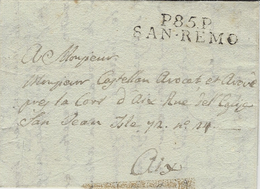 P85P
SAN-REMO
A Monsieur
Monsieur Castellan Avocat et Avoué
près la Cour d'Aix Rue de l'Eglise
San Jean Isle 72. n.° 14
Aix